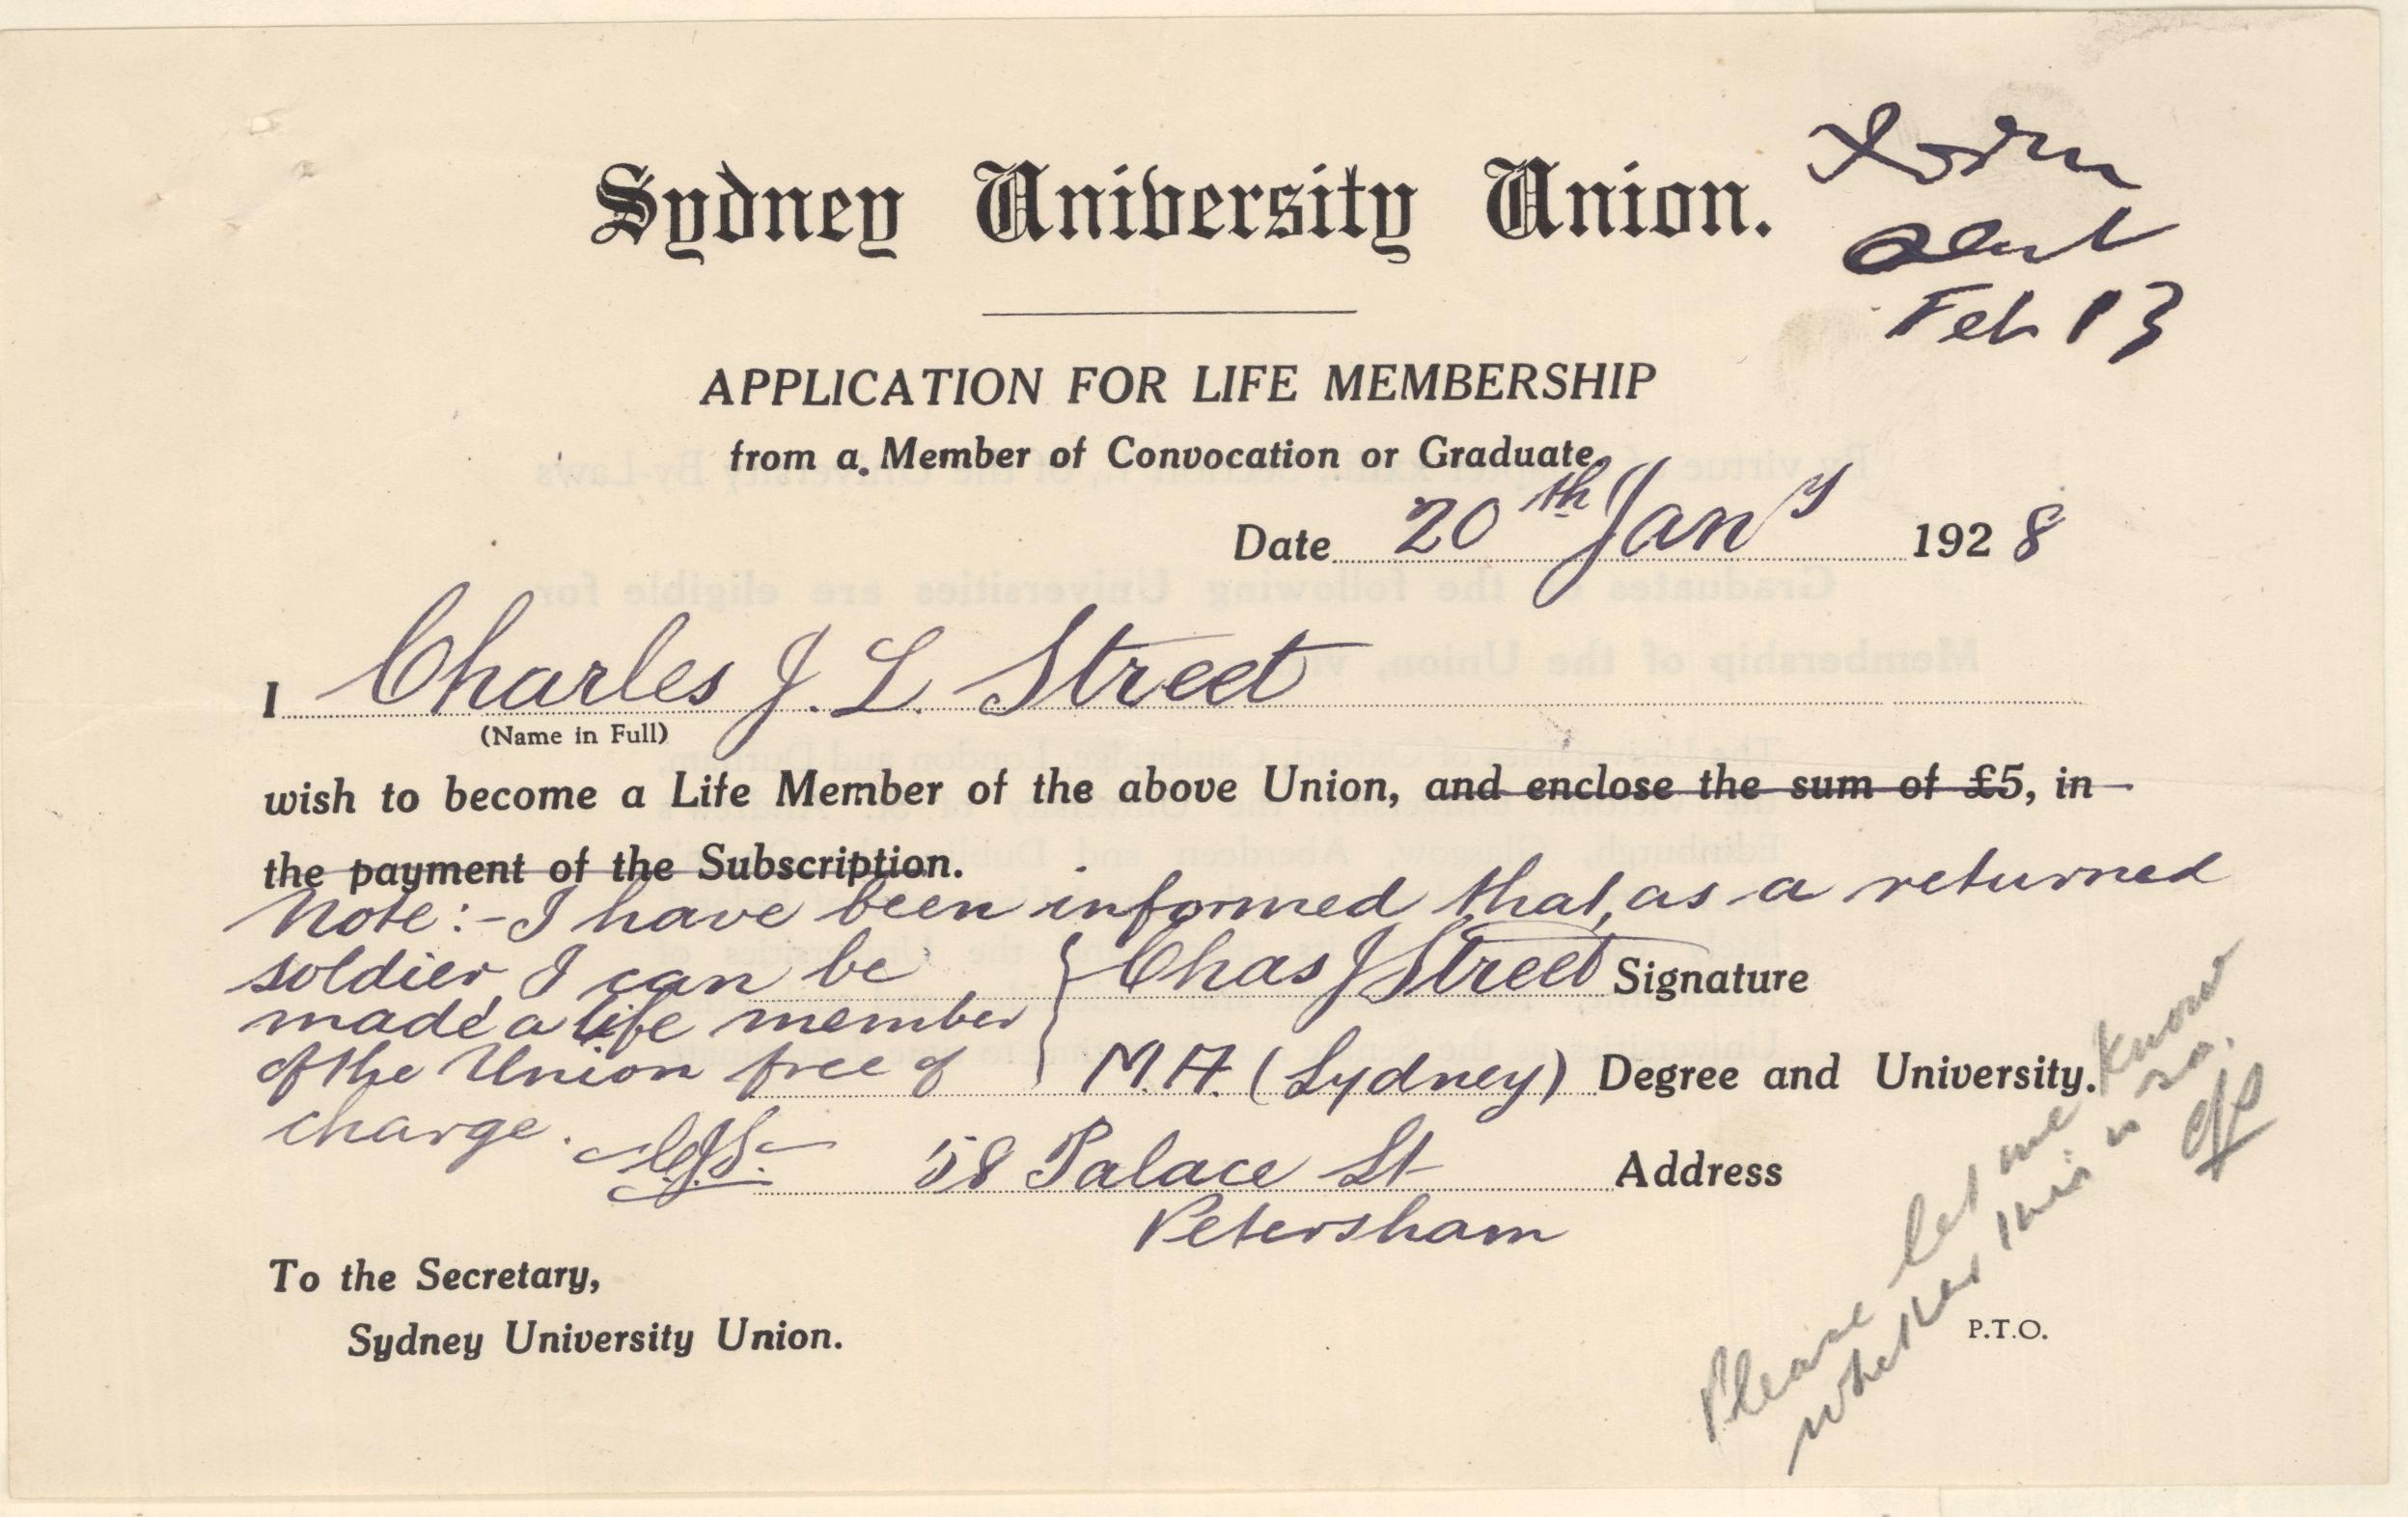 Sydney University Union.
Feb 13
APPLICATION FOR LIFE MEMBERSHIP
from a Member of Convocation or Graduate.
Date 20th Jany 1928
I Charles J. L. Street
(Name in Full)
wish to become a Life Member of the above Union, and enclose the sum of £5, in
the payment of the Subscription.
Note:- I have been informed that, as a returned
soldier, I can be
made a life member
of the Union free of
charge. C.J.S.
Chas J Street Signature
M.A. (Sydney) Degree and University.
58 Palace St Address
Petersham
To the Secretary,
Sydney University Union.
P.T.O.
Please let me know
whether this is so.
CJS